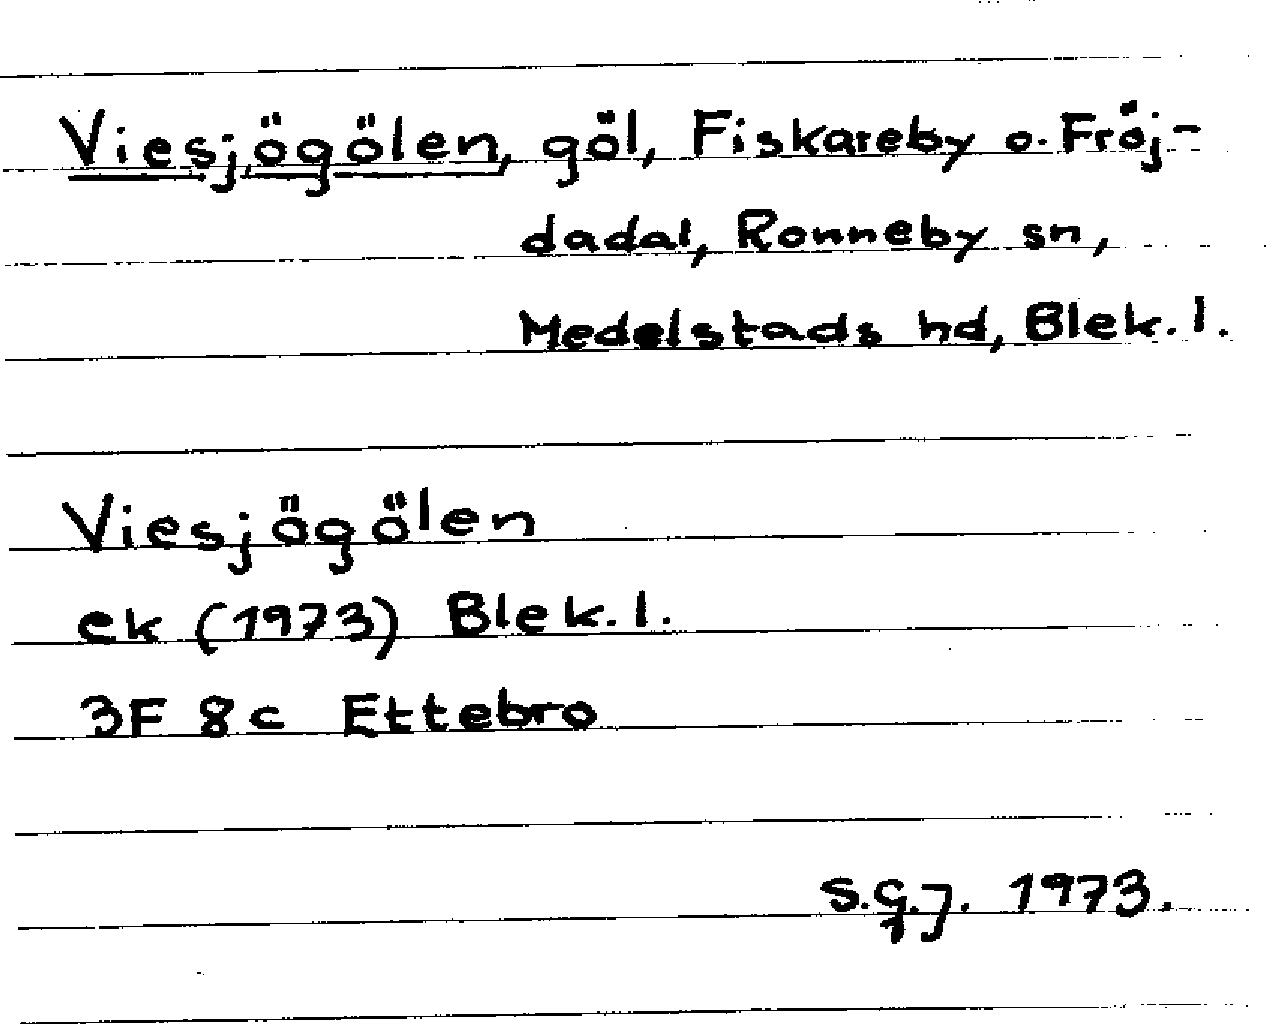 Viesjögölen, göl, Fiskareby o. Fröj-
dadal, Ronneby sn,
Medelstads hd, Blek. l.
Viesjögölen
ek (1973) Blek. l.
3F 8c Ettebro
S.G.J. 1973.